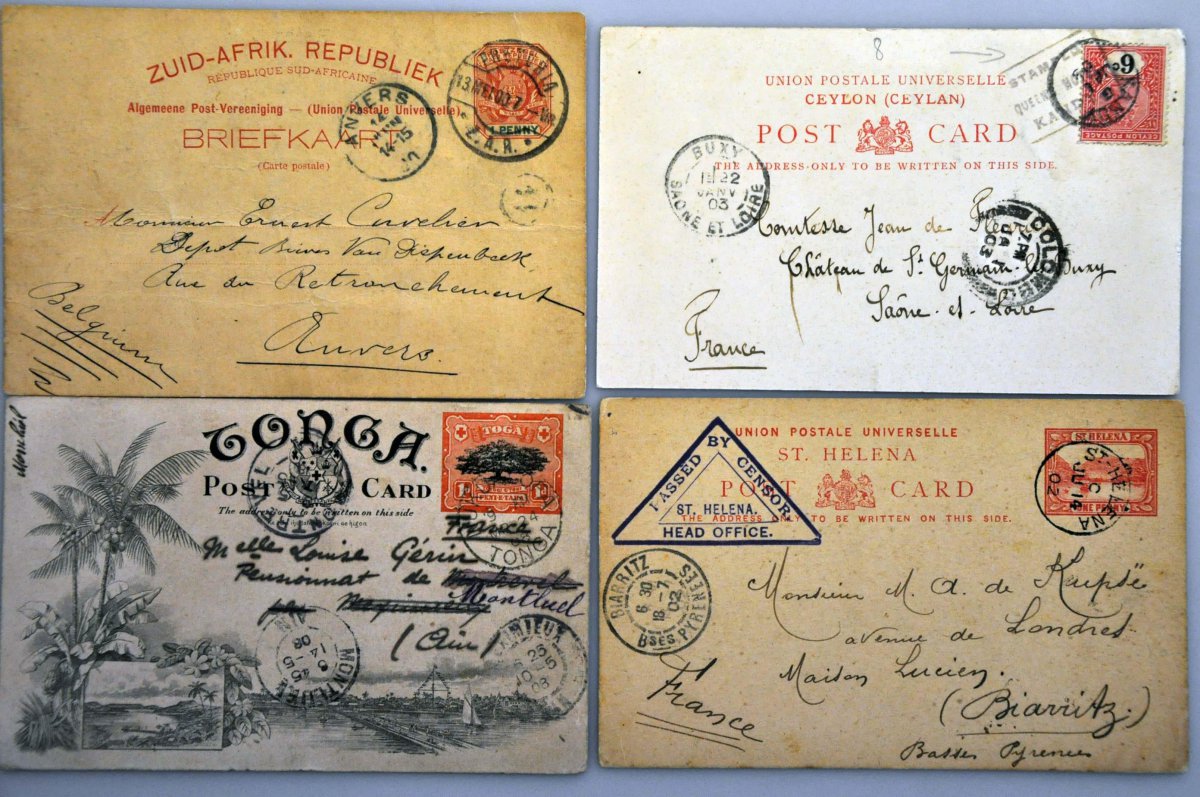 ZUID-AFRIK. REPUBLIEK
RÉPUBLIQUE SUD-AFRICAINE
Algemeene Post-Vereeniging — (Union Postale Universelle)
BRIEFKAART
(Carte postale)
1 PENNY
PRETORIA
Z.A.R.
ANVERS
14-15
Monsieur Ernest Cuvelier
Depot
Rue du Retranchement
Anvers.
Belgium
8
UNION POSTALE UNIVERSELLE
CEYLON (CEYLAN)
POST CARD
THE ADDRESS ONLY TO BE WRITTEN ON THIS SIDE.
6
CEYLON POSTAGE
BUXY
22
JANV
03
SAONE ET LOIRE
COLOMBO
Comtesse Jean de
Château de St Germain-les-Buxy
Saône-et-Loire
France
TONGA.
POST CARD
The address only to be written on this side
TOGA
1d 1d
PENI-E-TAHA
TONGA
France
Melle Louise Gérin
Pensionnat de
Montluel
(Ain)
MONTLUEL
AIN
UNION POSTALE UNIVERSELLE
ST. HELENA
POST CARD
THE ADDRESS ONLY TO BE WRITTEN ON THIS SIDE.
PASSED BY CENSOR
ST. HELENA.
HEAD OFFICE.
ST HELENA
ONE PENNY
ST HELENA
C
JU 14
02
BIARRITZ
6 30
18-7
02
BSES PYRENEES
Monsieur M. A. de
avenue de Londres
Maison Lucien.
(Biarritz.)
Basses Pyrenees
France